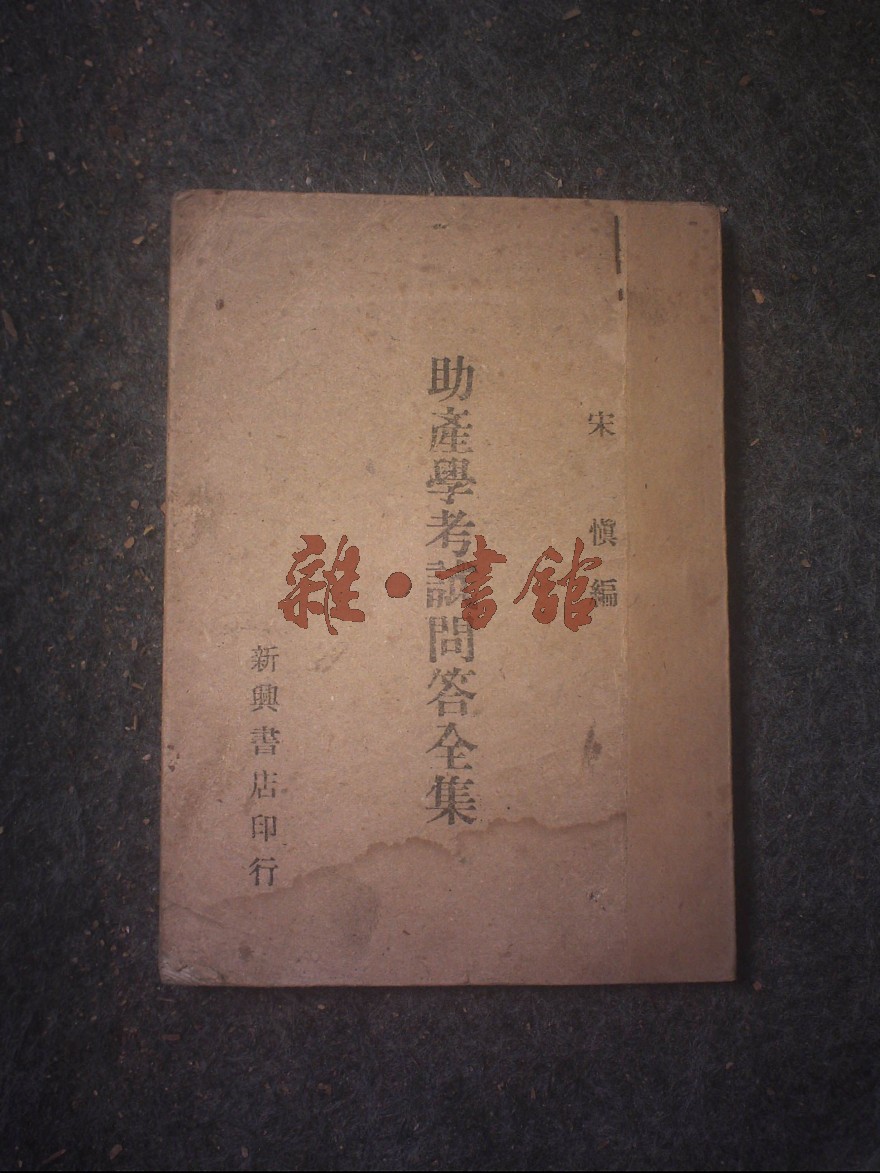 宋慎編
助產學考試問答全集
新興書店印行
雜·書館